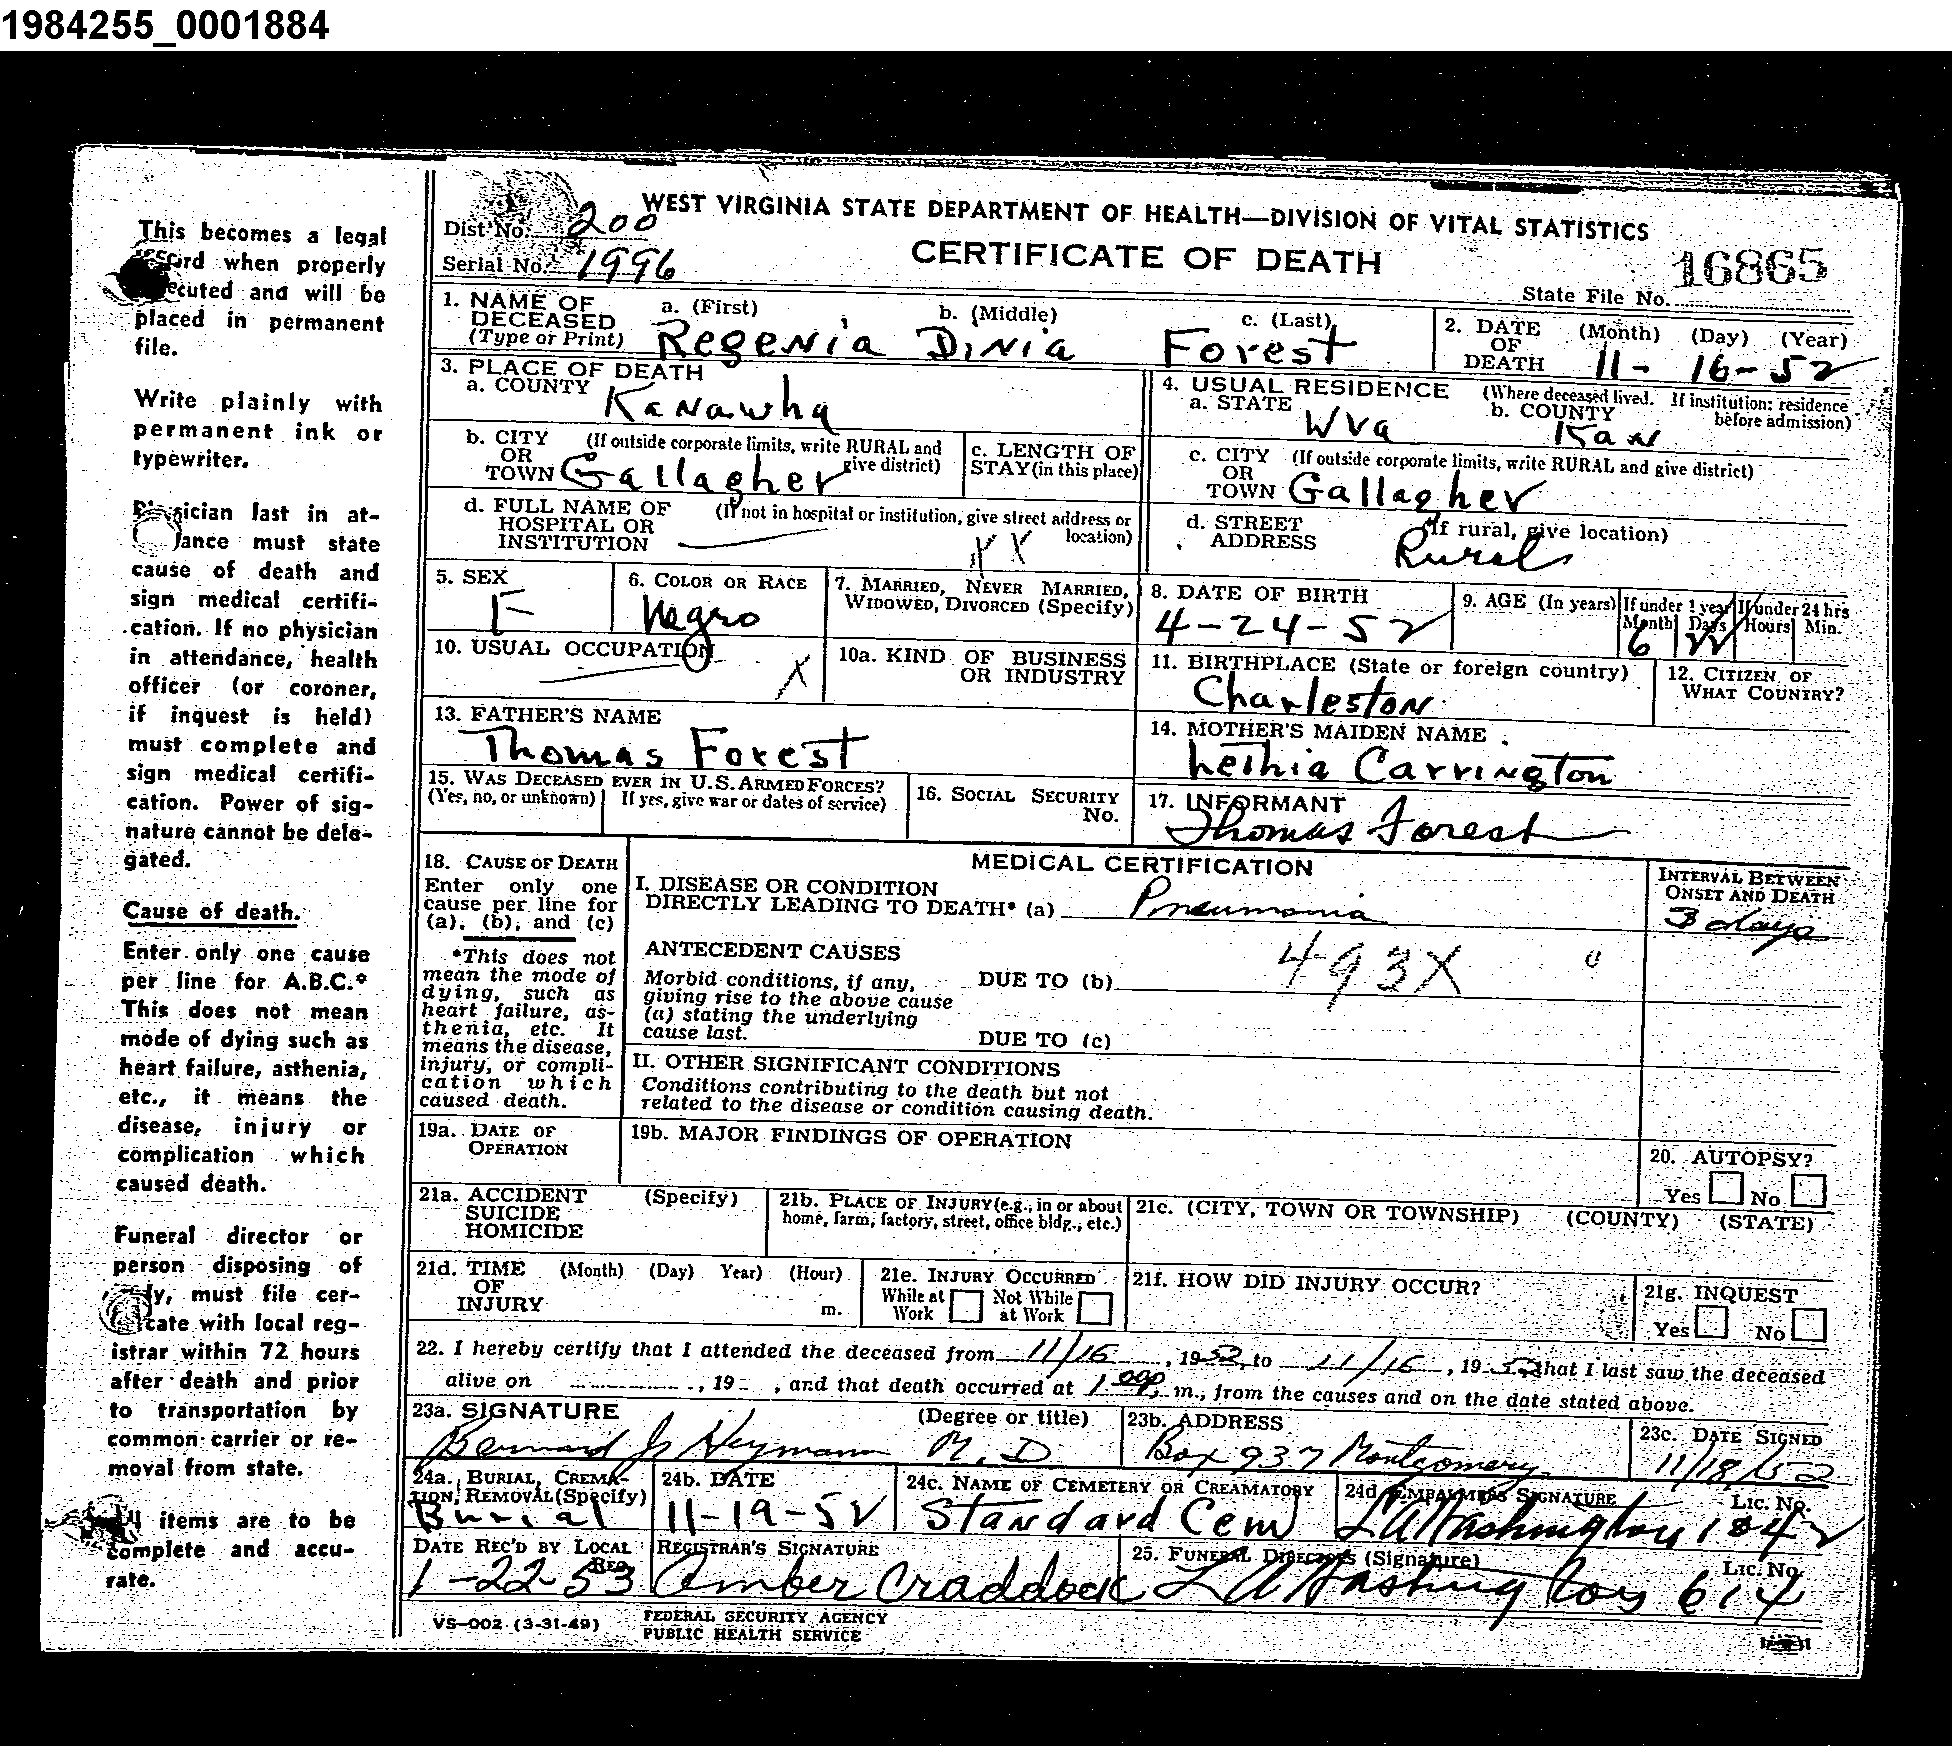 1984255_0001884
This becomes a legal
when properly
and will be
placed in permanent
file.
Write plainly with
permanent ink or
typewriter.
last in at-
must state
cause of death and
sign medical certifi-
cation. If no physician
in attendance, health
officer (or coroner,
if inquest is held)
must complete and
sign medical certifi-
cation. Power of sig-
nature cannot be dele-
gated.
Cause of death.
Enter only one cause
per line for A.B.C.*
This does not mean
mode of dying such as
heart failure, asthenia,
etc., it means the
disease, injury or
complication which
caused death.
Funeral director or
person disposing of
must file cer-
cate with local reg-
istrar within 72 hours
after death and prior
to transportation by
common carrier or re-
moval from state.
items are to be
complete and accu-
rate.
WEST VIRGINIA STATE DEPARTMENT OF HEALTH—DIVISION OF VITAL STATISTICS
Dist No. 200
CERTIFICATE OF DEATH
Serial No. 1996
16865
State File No.
1. NAME OF DECEASED (Type or Print) a. (First) b. (Middle) c. (Last)
Regenia Dinia Forest
2. DATE OF DEATH (Month) (Day) (Year)
11- 16-52
3. PLACE OF DEATH
a. COUNTY Kanawha
4. USUAL RESIDENCE (Where deceased lived. If institution: residence before admission)
a. STATE WVa b. COUNTY Kan
b. CITY OR TOWN (If outside corporate limits, write RURAL and give district)
Gallagher
c. LENGTH OF STAY (in this place)
c. CITY OR TOWN (If outside corporate limits, write RURAL and give district)
Gallagher
d. FULL NAME OF HOSPITAL OR INSTITUTION (If not in hospital or institution, give street address or location)
XX
d. STREET ADDRESS (If rural, give location)
Rural
5. SEX F
6. COLOR OR RACE Negro
7. MARRIED, NEVER MARRIED, WIDOWED, DIVORCED (Specify)
8. DATE OF BIRTH 4-24-52
9. AGE (In years) If under 1 year Month Days If under 24 hrs Hours Min.
6
10. USUAL OCCUPATION X
10a. KIND OF BUSINESS OR INDUSTRY
11. BIRTHPLACE (State or foreign country)
Charleston
12. CITIZEN OF WHAT COUNTRY?
13. FATHER'S NAME
Thomas Forest
14. MOTHER'S MAIDEN NAME
Lethia Carrington
15. WAS DECEASED EVER IN U.S. ARMED FORCES?
(Yes, no, or unknown) If yes, give war or dates of service)
16. SOCIAL SECURITY No.
17. INFORMANT
Thomas Forest
18. CAUSE OF DEATH
Enter only one
cause per line for
(a), (b), and (c)
*This does not
mean the mode of
dying, such as
heart failure, as-
thenia, etc. It
means the disease,
injury, or compli-
cation which
caused death.
MEDICAL CERTIFICATION
I. DISEASE OR CONDITION
DIRECTLY LEADING TO DEATH* (a) Pneumonia
INTERVAL BETWEEN ONSET AND DEATH
3 days
ANTECEDENT CAUSES
493X
Morbid conditions, if any, DUE TO (b)
giving rise to the above cause
(a) stating the underlying
cause last. DUE TO (c)
II. OTHER SIGNIFICANT CONDITIONS
Conditions contributing to the death but not
related to the disease or condition causing death.
19a. DATE OF OPERATION
19b. MAJOR FINDINGS OF OPERATION
20. AUTOPSY?
Yes No
21a. ACCIDENT SUICIDE HOMICIDE (Specify)
21b. PLACE OF INJURY (e.g., in or about home, farm, factory, street, office bldg., etc.)
21c. (CITY, TOWN OR TOWNSHIP) (COUNTY) (STATE)
21d. TIME OF INJURY (Month) (Day) Year) (Hour) m.
21e. INJURY OCCURRED
While at Work Not While at Work
21f. HOW DID INJURY OCCUR?
21g. INQUEST
Yes No
22. I hereby certify that I attended the deceased from 11/16, 1952, to 11/16, 1952, that I last saw the deceased
alive on , 19 , and that death occurred at m., from the causes and on the date stated above.
23a. SIGNATURE (Degree or title)
Bernard J Heymann M.D
23b. ADDRESS
Box 937 Montgomery
23c. DATE SIGNED
11/18/52
24a. BURIAL, CREMA-
TION, REMOVAL (Specify)
Burial
24b. DATE
11-19-52
24c. NAME OF CEMETERY OR CREAMATORY
Standard Cem
24d. EMBALMERS SIGNATURE Lic. No.
L A Washington 1842
DATE REC'D BY LOCAL REG.
1-22-53
REGISTRAR'S SIGNATURE
Amber Craddock
25. FUNERAL DIRECTORS (Signature) Lic. No.
L A Washington 614
VS-002 (3-31-49)
FEDERAL SECURITY AGENCY
PUBLIC HEALTH SERVICE